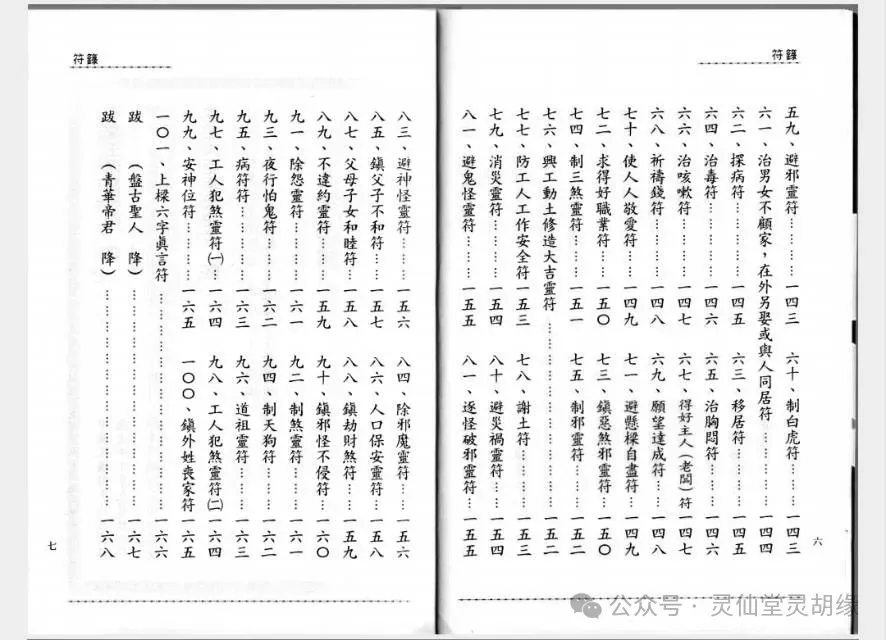 符籙
五九、避邪靈符………一四三 六十、制白虎符………一四三
六一、治男女不顧家，在外另娶或與人同居符………一四四
六二、探病符………一四五 六三、移居符………一四五
六四、治毒符………一四六 六五、治胸悶符………一四六
六六、治咳嗽符………一四七 六七、得好主人（老闆）符………一四七
六八、祈禱錢符………一四八 六九、願望達成符………一四八
七十、使人人敬愛符………一四九 七一、避懸樑自盡符………一四九
七二、求得好職業符………一五〇 七三、鎮惡煞邪靈符………一五〇
七四、制三煞靈符………一五一 七五、制邪靈符………一五一
七六、興工動土修造大吉靈符………一五二
七七、防工人工作安全符………一五三 七八、謝土符………一五三
七九、消災靈符………一五四 八十、避災禍靈符………一五四
八一、避鬼怪靈符………一五五 八一、逐怪破邪靈符………一五五
六
符籙
八三、避神怪靈符………一五六 八四、除邪魔靈符………一五六
八五、鎮父子不和符………一五七 八六、人口保安靈符………一五八
八七、父母子女和睦符………一五八 八八、鎮劫財煞符………一五九
八九、不違約靈符………一五九 九十、鎮邪怪不侵符………一六〇
九一、除怨靈符………一六一 九二、制煞靈符………一六一
九三、夜行怕鬼符………一六二 九四、制天狗符………一六二
九五、病符符………一六三 九六、道祖靈符………一六三
九七、工人犯煞靈符㈠………一六四 九八、工人犯煞靈符㈡………一六四
九九、安神位符………一六五 一〇〇、鎮外姓喪家符………一六五
一〇一、上樑六字眞言符………一六六
跋（盤古聖人 降）………一六七
跋（青華帝君 降）………一六八
七
公众号·灵仙堂灵胡缘